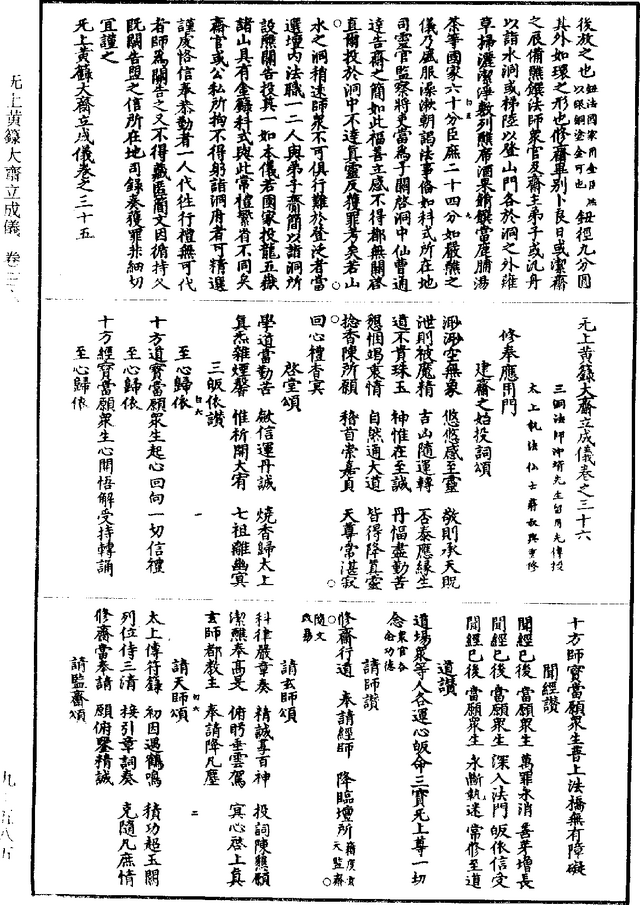 後放之也鈕法國家用金臣庶以銀銅塗金可也鈕徑九分圓
其外如環之形也修齋畢別卜良日或潔齋
之辰備醮饌法師衆官及齋主弟子或汎舟
以詣水洞或梯陸以登山門各於洞之外薙
草掃灑潔淨敷列醮席酒果餚饌當庭脯湯
茶等國家六十分臣庶二十四分如嚴醮之
儀乃盛服澡漱朝謁法事備如科式所在地
司靈官監察將吏當為子關啓洞中仙曹通
達告齋之簡如此福善立感不得都無關啓
直爾投於洞中不達真靈反獲罪考矣若山
水之洞稍遠師衆不可俱行難於登泛者當
選壇內法職一二人與弟子齎簡以詣洞所
設醮關告投奠一如本儀若國家投龍五嶽
諸山具有金籙科式與此常禮繁省不同矣
齋官或公私所拘不得躬詣洞府者可精選
謹虔恪信奉恭勤者一人代往行禮無可代
者師爲關告之又不得藏匿簡文因循持久
既關告盟之信所在地司錄奏獲罪非細切
宜謹之
无上黃籙大齋立成儀卷之三十五
无上黃籙大齋立成儀卷之三十六
三洞法師沖靖先生留用光傳授
太上執法仙士蔣叔輿重修
修奉應用門
建齋之始投詞頌
渺渺空無象 悠悠感至靈 敬則承天貺
泄則被魔精 吉凶隨運轉 否泰應緣生
遺不貴珠玉 神惟在至誠 丹惱盡勤苦
懇悃竭衷情 自然通大道 皆得降真靈
捻香陳所願 稽首崇嘉貞 天尊常湛寂
回心禮杳冥
啓堂頌
學道當勤苦 歛信運丹誠 燒香歸太上
真炁雜煙馨 惟祈開大宥 七祖離幽冥
三皈依讚
至心歸依
十方道寶當願衆生起心回向一切信禮
至心歸依
十方經寶當願衆生心開悟解受持轉誦
至心歸依
十方師寶當願衆生普上法橋無有障礙
聞經讚
聞經已後 當願衆生 萬罪永消 善芽增長
聞經已後 當願衆生 深入法門 皈依信受
聞經已後 當願衆生 永斷執迷 常修至道
道讚
道場衆等人各運心皈命三寶无上尊一切
念衆官各念功德
請師讚
修齋行道 奉請經師 降臨壇所籍度監齋
隨文改易
請玄師頌
科律嚴章奏 精誠享百神 投詞陳醮願
潔醮奉高旻 俯盻垂雲駕 冥心啓上真
玄師都教主 奉請降凡塵
請天師頌
太上傳符籙 初因遇鶴鳴 積功超玉闕
列位侍三清 接引章詞奏 克隨凡庶情
修齋當奉請 願俯鑒精誠
請監齋頌
无上黃籙大齋立成儀 卷三六
九—五八五